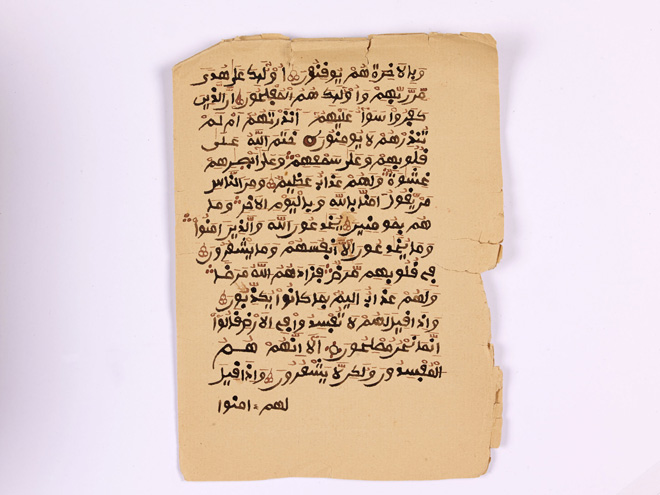 وبالاخرة هم يوقنون اولئك على هدى
من ربهم واولئك هم المفلحون ان الذين
كفروا سواء عليهم أنذرتهم ام لم
تنذرهم لا يومنون ختم الله على
قلوبهم وعلى سمعهم وعلى ابصرهم
غشوة ولهم عذاب عظيم ومن الناس
من يقول امنا بالله وباليوم الاخر وما
هم بمومنين يخدعون الله والذين امنوا
وما يخدعون الا انفسهم وما يشعرون
في قلوبهم مرض فزادهم الله مرضا
ولهم عذاب اليم بما كانوا يكذبون
واذا قيل لهم لا تفسدوا في الارض قالوا
انما نحن مصلحون الا انهم هم
المفسدون ولكن لا يشعرون واذا قيل
لهم امنوا